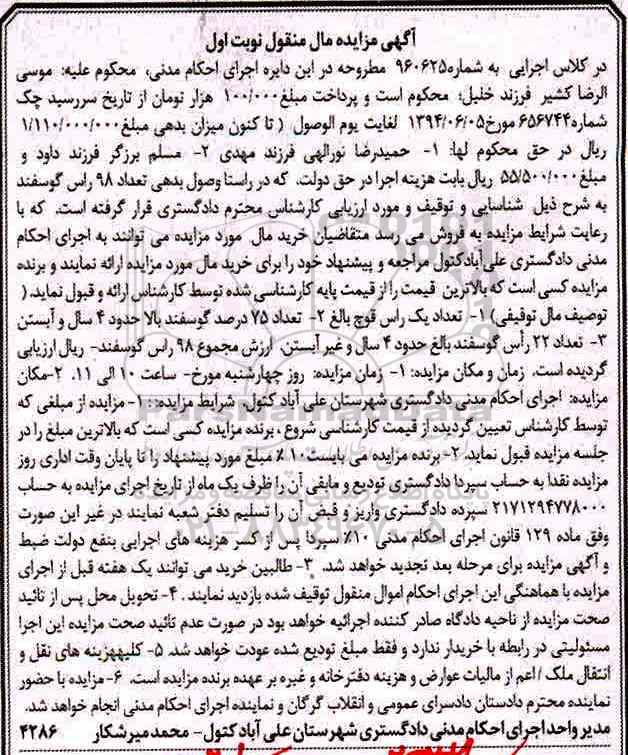 آگهی مزایده مال منقول نوبت اول
در کلاس اجرایی به شماره ۹۶۰۶۲۵ مطروحه در این دایره اجرای احکام مدنی، محکوم علیه: موسی
الرضا کشیر فرزند خلیل؛ محکوم است و پرداخت مبلغ ۱۰۰/۰۰۰ هزار تومان از تاریخ سررسید چک
شماره ۶۵۶۷۴۴ مورخ ۱۳۹۴/۰۶/۰۵ لغایت یوم الوصول ( تا کنون میزان بدهی مبلغ ۱/۱۱۰/۰۰۰/۰۰۰
ریال در حق محکوم لها: ۱- حمیدرضا نورالهی فرزند مهدی ۲- مسلم برزگر فرزند داود و
مبلغ ۵۵/۵۰۰/۰۰۰ ریال بابت هزینه اجرا در حق دولت، که در راستا وصول بدهی تعداد ۹۸ راس گوسفند
به شرح ذیل شناسایی و توقیف و مورد ارزیابی کارشناس محترم دادگستری قرار گرفته است، که با
رعایت شرایط مزایده به فروش می رسد متقاضیان خرید مال مورد مزایده می توانند به اجرای احکام
مدنی دادگستری علی آبادکتول مراجعه و پیشنهاد خود را برای خرید مال مورد مزایده ارائه نمایند و برنده
مزایده کسی است که بالاترین قیمت را از قیمت پایه کارشناسی شده توسط کارشناس ارائه و قبول نماید. (
توصیف مال توقیفی) ۱- تعداد یک راس قوچ بالغ ۲- تعداد ۷۵ درصد گوسفند بالا حدود ۴ سال و آبستن
۳- تعداد ۲۲ رأس گوسفند بالغ حدود ۴ سال و غیر آبستن. ارزش مجموع ۹۸ راس گوسفند- ریال ارزیابی
گردیده است. زمان و مکان مزایده: ۱- زمان مزایده: روز چهارشنبه مورخ- ساعت ۱۰ الی ۱۱. ۲-مکان
مزایده: اجرای احکام مدنی دادگستری شهرستان علی آباد کتول شرایط مزایده: : ۱- مزایده از مبلغی که
توسط کارشناس تعیین گردیده از قیمت کارشناسی شروع ، برنده مزایده کسی است که بالاترین مبلغ را در
جلسه مزایده قبول نماید. ۲- برنده مزایده می بایست ۱۰ ٪ مبلغ مورد پیشنهاد را تا پایان وقت اداری روز
مزایده نقدا به حساب سپردا دادگستری تودیع و مابقی آن را ظرف یک ماه از تاریخ اجرای مزایده به حساب
۲۱۷۱۲۹۴۷۷۸۰۰۰ سپرده دادگستری واریز و قبض آن را تسلیم دفتر شعبه نمایند در غیر این صورت
وفق ماده ۱۲۹ قانون اجرای احکام مدنی ۱۰٪ سپردا پس از کسر هزینه های اجرایی بنفع دولت ضبط
و آگهی مزایده برای مرحله بعد تجدید خواهد شد. ۳- طالبین خرید می توانند یک هفته قبل از اجرای
مزایده با هماهنگی این اجرای احکام اموال منقول توقیف شده بازدید نمایند . ۴- تحویل محل پس از تائید
صحت مزایده از ناحیه دادگاه صادر کننده اجرائیه خواهد بود در صورت عدم تائید صحت مزایده این اجرا
مسئولیتی در رابطه با خریدار ندارد و فقط مبلغ تودیع شده عودت خواهد شد. ۵- کلیههزینه های نقل و
انتقال ملک / اعم از مالیات عوارض و هزینه دفترخانه و غیره بر عهده برنده مزایده است. ۶-مزایده با حضور
نماینده محترم دادستان دادسرای عمومی و انقلاب گرگان و نماینده اجرای احکام مدنی انجام خواهد شد.
مدیر واحد اجرای احکام مدنی دادگستری شهرستان علی آباد کتول- محمد میرشکار ۴۲۸۶